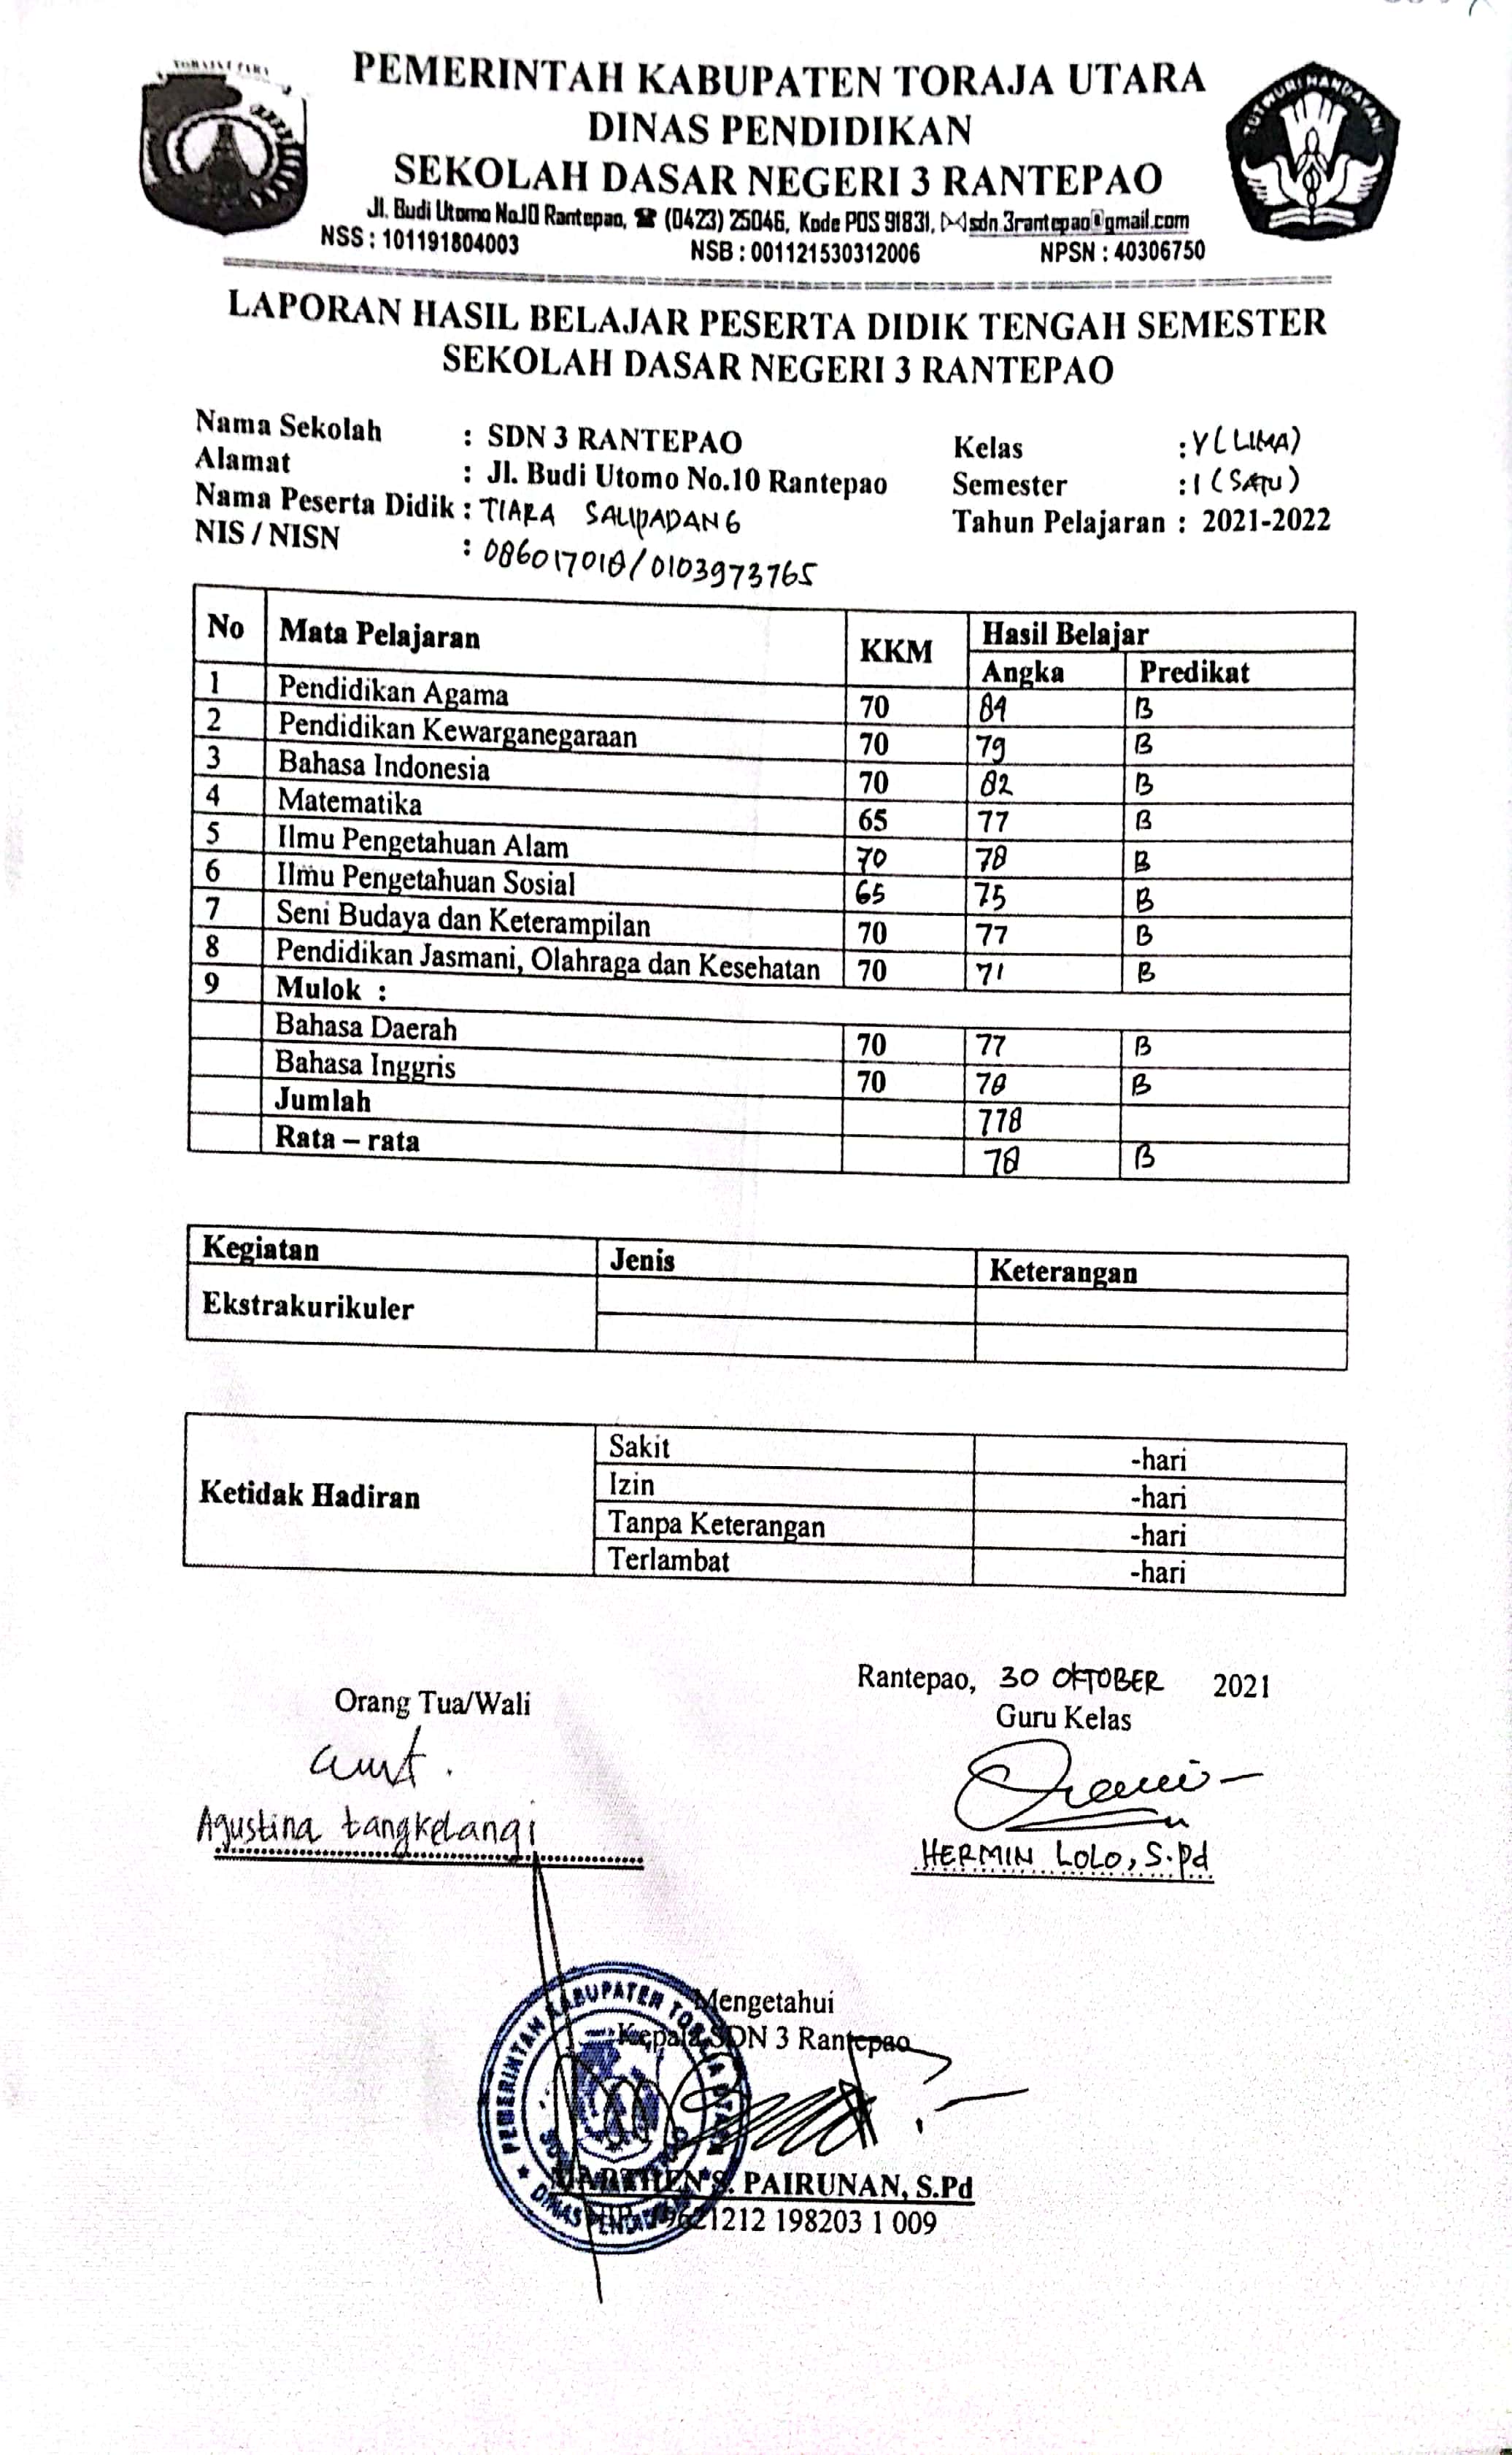 PEMERINTAH KABUPATEN TORAJA UTARA
DINAS PENDIDIKAN
SEKOLAH DASAR NEGERI 3 RANTEPAO
Jl. Budi Utomo No.10 Rantepao, ☎ (0423) 25046, Kode POS 91831, sdn.3rantepao@gmail.com
NSS : 101191804003 NSB : 001121530312006 NPSN : 40306750
LAPORAN HASIL BELAJAR PESERTA DIDIK TENGAH SEMESTER
SEKOLAH DASAR NEGERI 3 RANTEPAO
Nama Sekolah : SDN 3 RANTEPAO Kelas : V (LIMA)
Alamat : Jl. Budi Utomo No.10 Rantepao Semester : 1 (SATU)
Nama Peserta Didik : TIARA SALIPADANG Tahun Pelajaran : 2021-2022
NIS / NISN : 086017018/0103973765
No Mata Pelajaran KKM Hasil Belajar
Angka Predikat
1 Pendidikan Agama 70 84 B
2 Pendidikan Kewarganegaraan 70 79 B
3 Bahasa Indonesia 70 82 B
4 Matematika 65 77 B
5 Ilmu Pengetahuan Alam 70 78 B
6 Ilmu Pengetahuan Sosial 65 75 B
7 Seni Budaya dan Keterampilan 70 77 B
8 Pendidikan Jasmani, Olahraga dan Kesehatan 70 71 B
9 Mulok :
Bahasa Daerah 70 77 B
Bahasa Inggris 70 78 B
Jumlah 778
Rata – rata 78 B
Kegiatan Jenis Keterangan
Ekstrakurikuler
Ketidak Hadiran
Sakit -hari
Izin -hari
Tanpa Keterangan -hari
Terlambat -hari
Rantepao, 30 OKTOBER 2021
Orang Tua/Wali Guru Kelas
Agustina tangkelangi HERMIN LOLO, S.Pd
Mengetahui
Kepala SDN 3 Rantepao
PEMERINTAH KABUPATEN TORAJA UTARA
DINAS PENDIDIKAN
MARTHEN S. PAIRUNAN, S.Pd
NIP. 19621212 198203 1 009